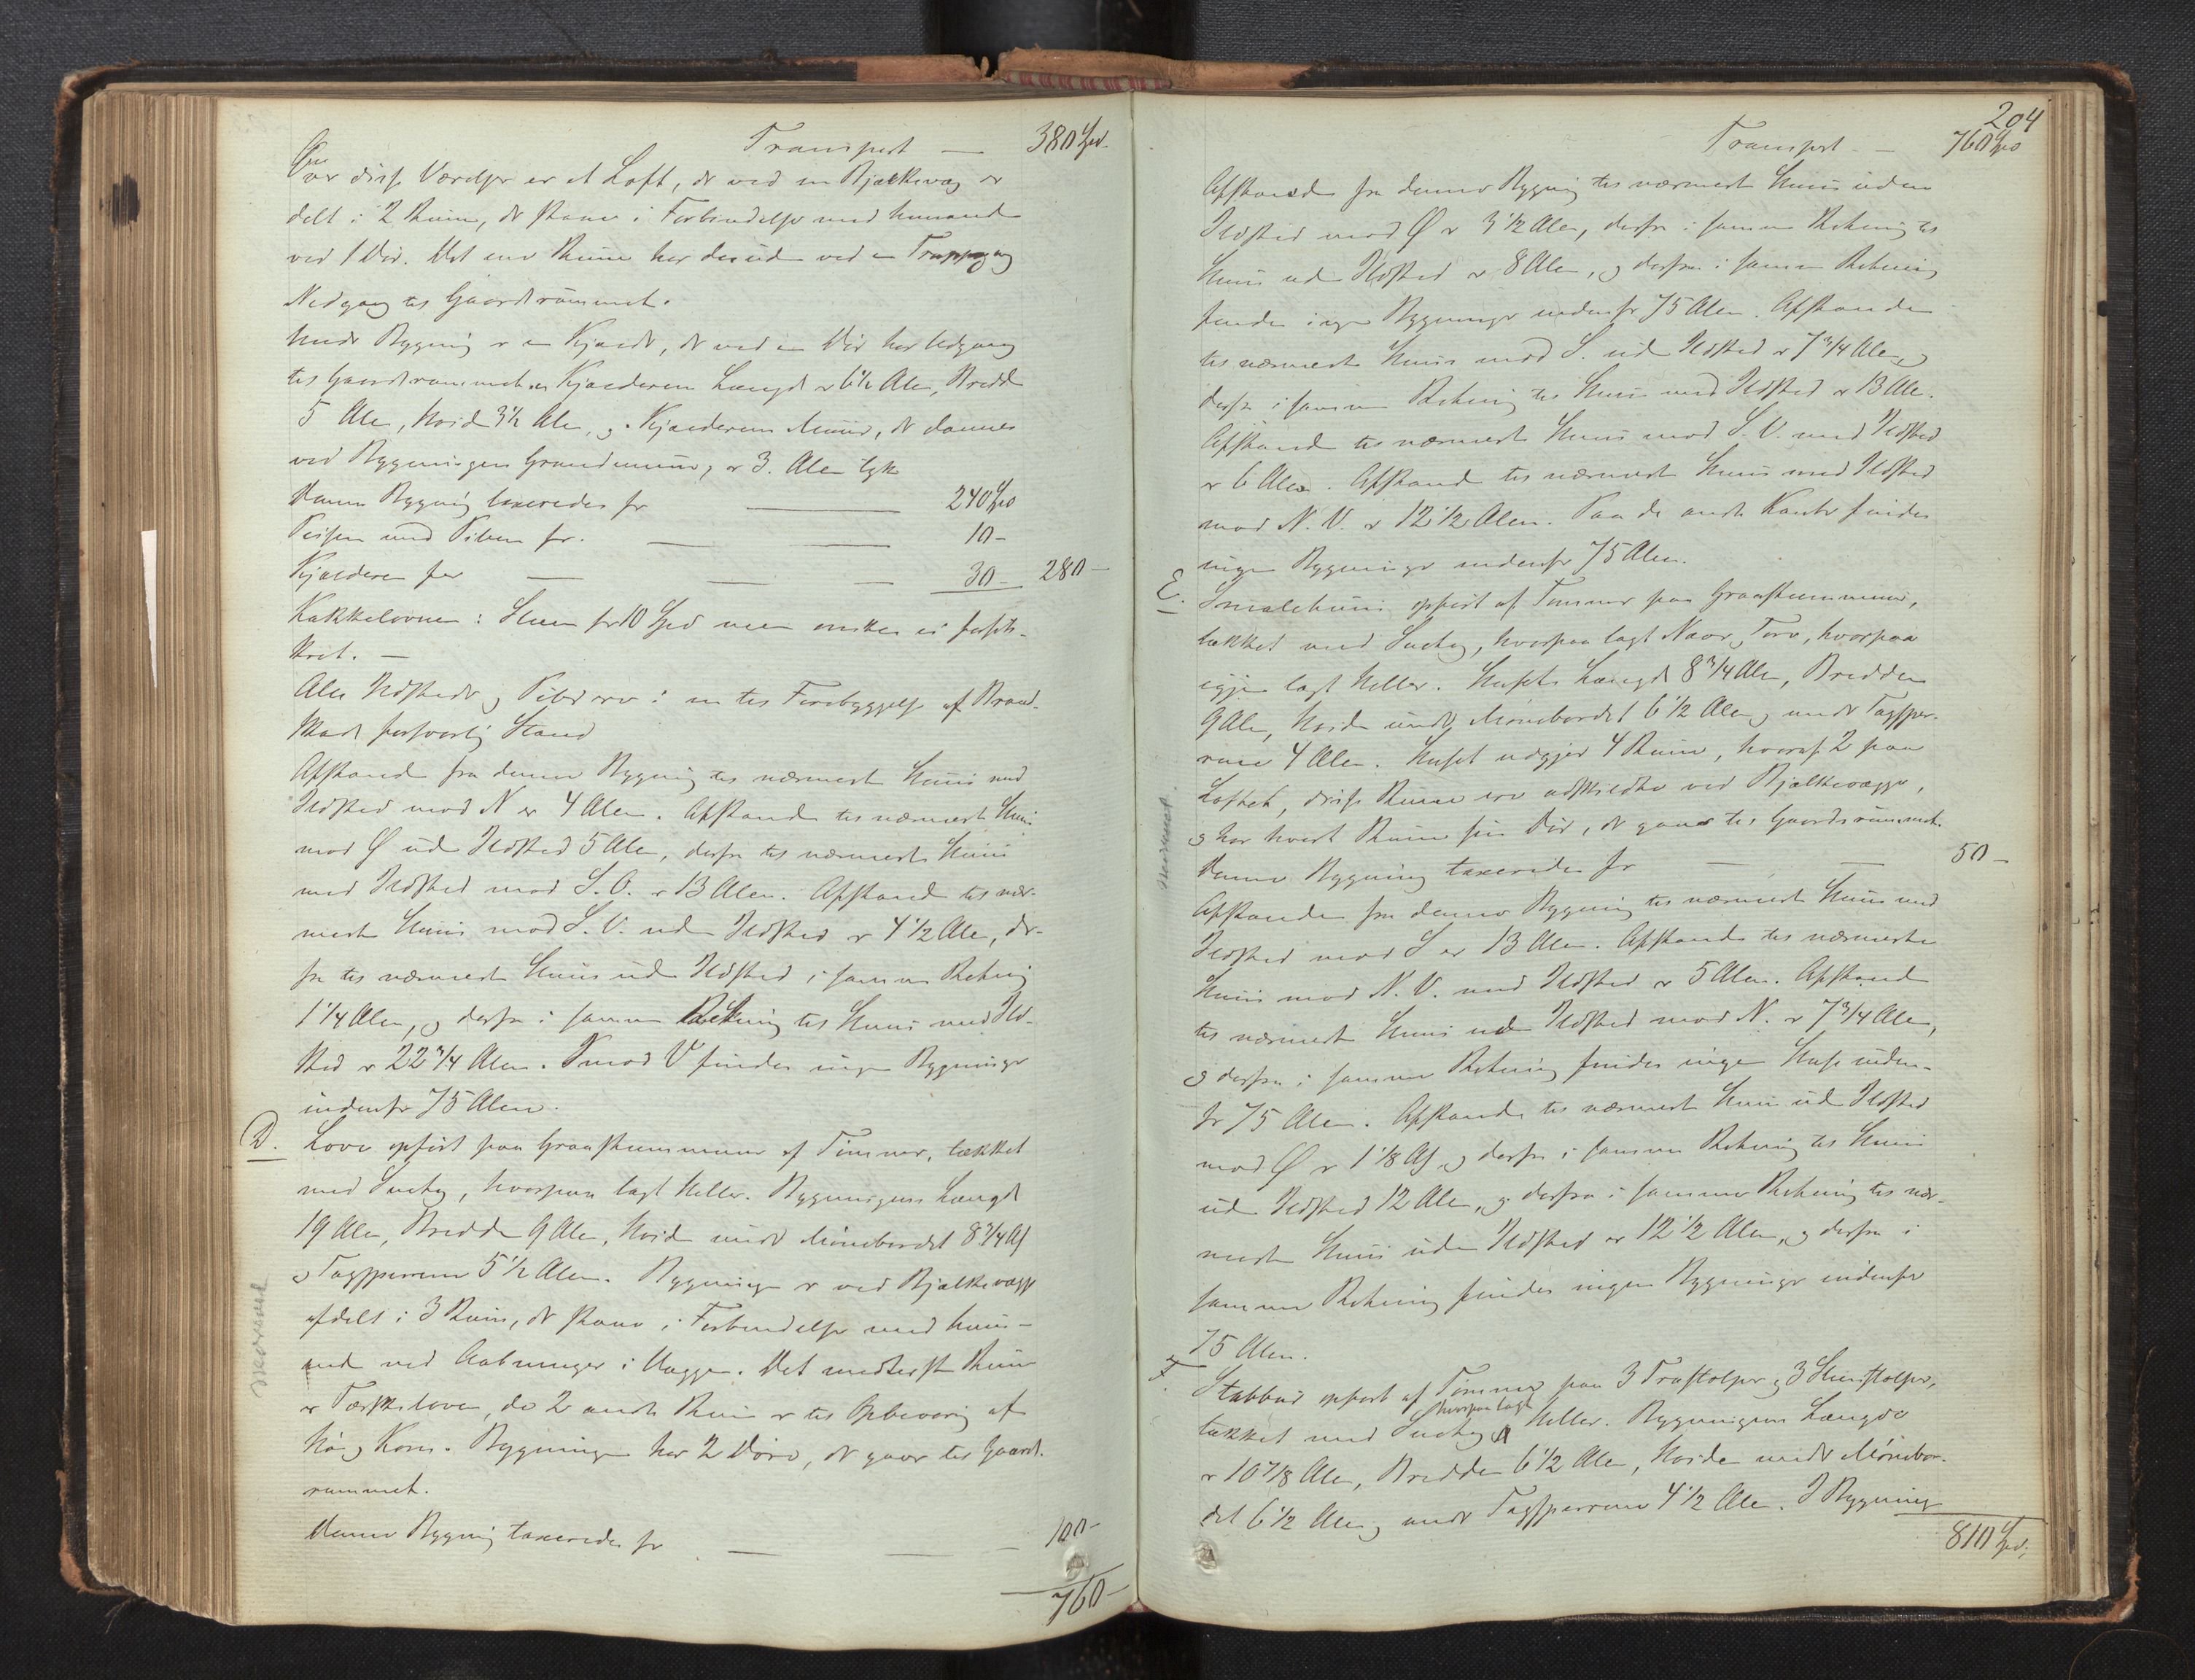 Transport — 380 Spd.
Over disse Værelser er et Loft, der ved en Bjælkevæg er
delt i 2 Rum, der staar i Forbindelse med hinanden
ved 1 Dør. Det ene Rum har desuden ved en Trappegang
Nedgang til Gaardsrummet.
Under Bygning er en Kjælder, der ved en Dør har Udgang
til Gaardsrummet. Kjælderens Længde er 6½ Alen, Bredde
5 Alen, Høide 3½ Alen, og Kjælderens Muur, der dannes
ved Bygningens Grundmuur, er 3. Alen tyk
Denne Bygning taxeredes for — 240 Spd
Peisen med Piben for. — — 10 -
Kjælderen for — — — 30 - 280 -
Kakkelovnen i Stuen for 10 Spd men ønskes ei forsik-
kret. —
Alle Ildsteder og Piber ere i en til Forebyggelse af Brand-
skade forsvarlig Stand
Afstand fra denne Bygning til nærmeste Huus med
Ildsted mod N er 4 Alen. Afstanden til nærmeste Huus
mod Ø uden Ildsted 5 Alen, derfra til nærmeste Huus
med Ildsted mod S.O. er 13 Alen. Afstand til nær-
meste Huus mod S.V. uden Ildsted er 4½ Alen, der-
fra til nærmeste Huus uden Ildsted i samme Retning
1¼ Alen, og derfra i samme Retning til Huus med Ild-
sted er 22¾ Alen. mod V findes ingen Bygninger
indenfor 75 Alen.
D. Love opført paa Graasteensmuur af Tømmer, tækket
med Sutag, hvorpaa lagt Heller. Bygningens Længde
19 Alen, Bredde 9 Alen, Høide under Mønebordet 8¾ Al
og Tagsperrene 5½ Alen. Bygningen er ved Bjælkevægge
afdelt i 3 Rum, der staar i Forbindelse med hin-
anden ved Aabninger i Vægge. Det mellerste Rum
er Tærskeloven, de 2 andre Rum er til Opbevaring af
Hø og Korn. Bygningen har 2 Døre, der gaar til Gaards-
rummet.
Denne Bygning taxeredes for — — — 100 -
760 -
204
Transport — 760 Spd
Afstanden fra denne Bygning til nærmeste Huus uden
Ildsted mod Ø er 3½ Alen, derfra i samme Retning til
Huus uden Ildsted er 8 Alen, og derfra i samme Retning
findes ingen Bygninger indenfor 75 Alen. Afstanden
til nærmeste Huus mod S. uden Ildsted er 7¾ Alen, og
derfra i samme Retning til Huus med Ildsted er 13 Alen.
Afstand til nærmeste Huus mod S.V. med Ildsted
er 6 Alen. Afstand til nærmeste Huus med Ildsted
mod N.V. er 12½ Alen. Paa de andre Kanter findes
ingen Bygninger indenfor 75 Alen.
E. Smalehuus opført af Tømmer paa Graasteensmuur,
tækket med Sutag, hvorpaa lagt Næver, Torv, hvorpaa
igjen lagt Heller. Husets Længde 8¾ Alen, Bredden
9 Alen, Høide under Mønebordet 6½ Alen og under Tagsper-
rene 4 Alen. Huset udgjør 4 Rum, hvoraf 2 paa
Loftet, disse Rum ere adskildte ved Bjælkevægge,
og har hvert Rum sin Dør, der gaar til Gaardsrummet.
Denne Bygning taxeredes for — — 50 -
Afstanden fra denne Bygning til nærmeste Huus med
Ildsted mod S er 13 Alen. Afstanden til nærmeste
Huus mod N.V. med Ildsted er 5 Alen. Afstand
til nærmeste Huus uden Ildsted mod N. er 7¾ Alen,
og derfra i samme Retning findes ingen Huse inden-
for 75 Alen. Afstanden til nærmeste Huus uden Ildsted
mod Ø er 1⅛ Al og derfra i samme Retning til Huus
uden Ildsted 12 Alen, og derfra i samme Retning til nær-
meste Huus uden Ildsted er 12½ Alen, og derfra i
samme Retning findes ingen Bygninger indenfor
75 Alen.
F. Stabbur opført af Tømmer paa 3 Træstolper og 3 Steenstolper,
tækket med Sutag hvorpaa lagt Heller. Bygningens Længde
er 10⅞ Alen, Bredden 6½ Alen, Høide under Mønebor-
det 6½ Alen og under Tagsperrene 4½ Alen. I Bygningen
810 Spd.